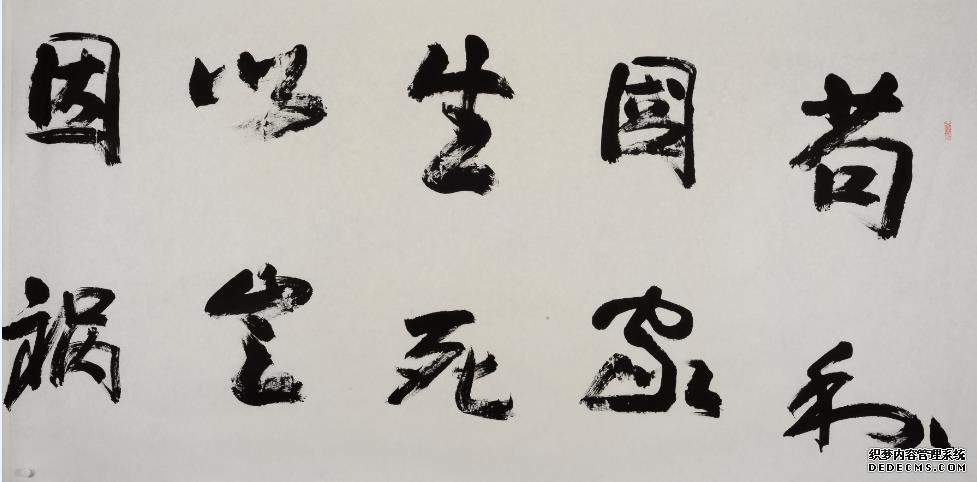 苟利
国家
生死
以岂
因祸
织梦内容管理系统
DEDECMS.COM